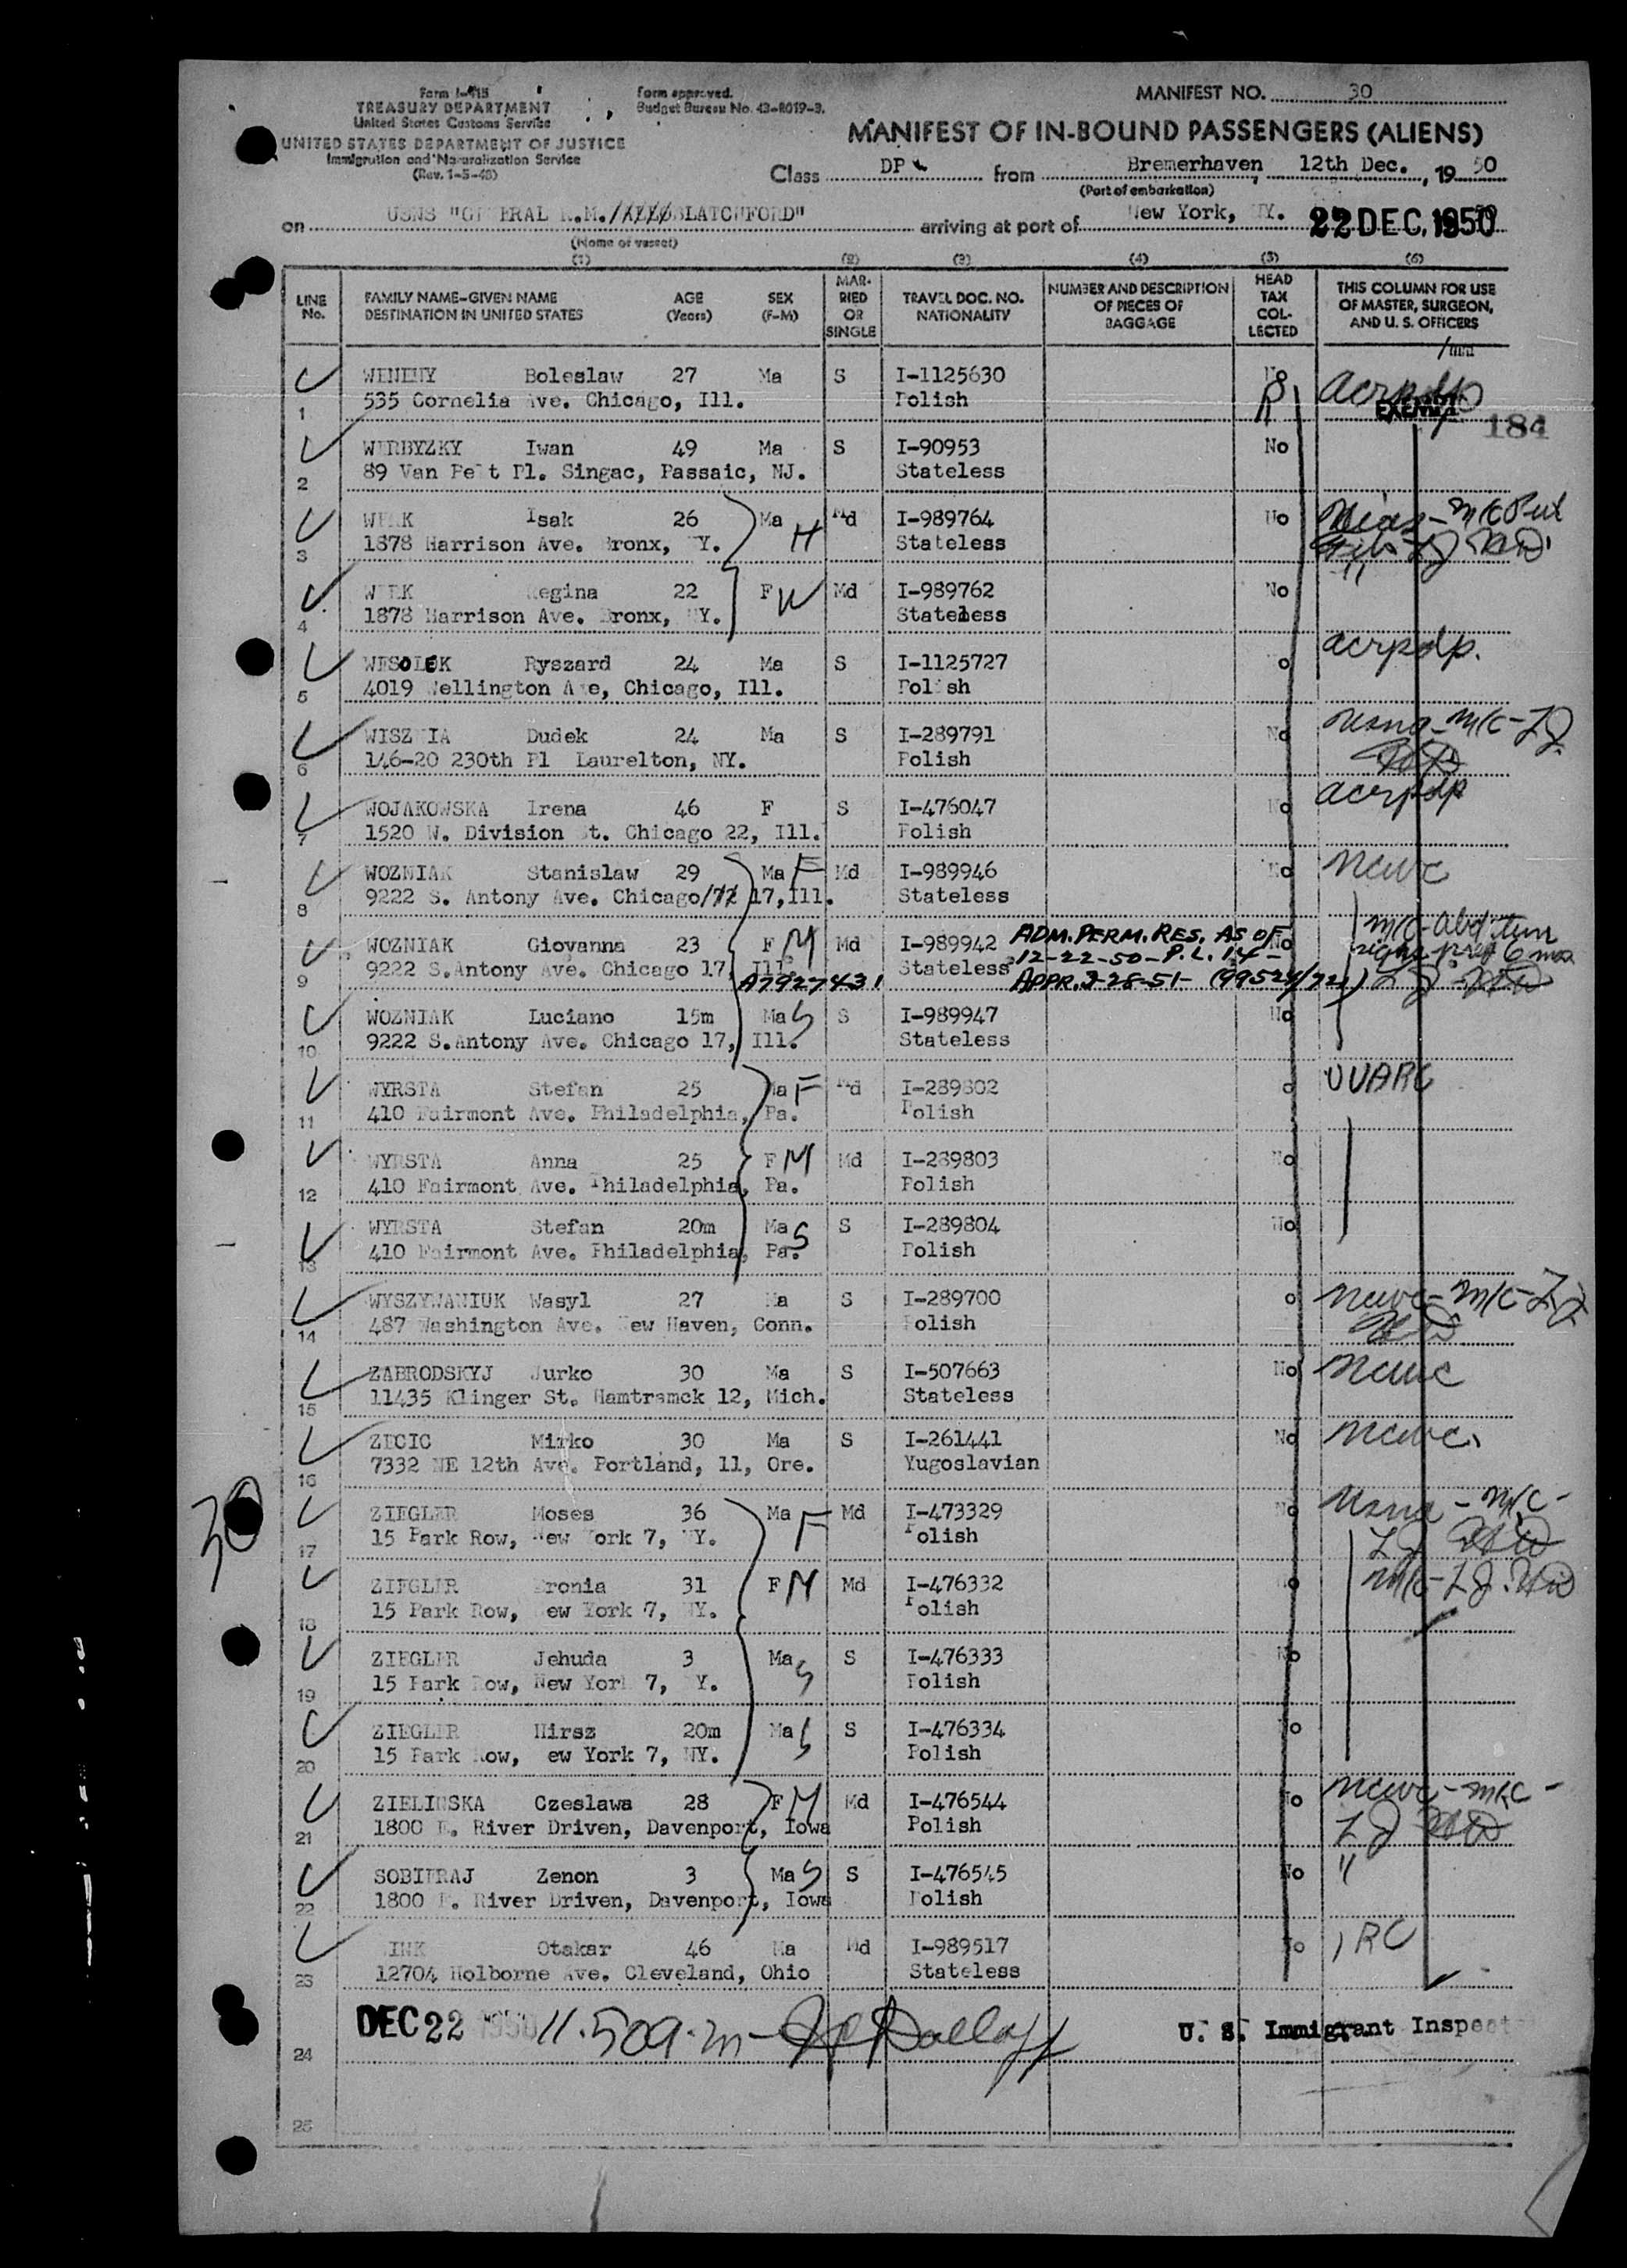 Form I-415
TREASURY DEPARTMENT
United States Customs Service
UNITED STATES DEPARTMENT OF JUSTICE
Immigration and Naturalization Service
(Rev. 1-5-48)
Form approved.
Budget Bureau No. 43-R019-3.
MANIFEST NO. 30
MANIFEST OF IN-BOUND PASSENGERS (ALIENS)
Class DP from Bremerhaven, 12th Dec., 19 50
(Port of embarkation)
on USNS "GENERAL R.M. BLATCHFORD" arriving at port of New York, NY. 22 DEC. 1950
(Name of vessel)
(1) (2) (3) (4) (5) (6)
LINE No. FAMILY NAME-GIVEN NAME DESTINATION IN UNITED STATES AGE (Years) SEX (F-M) MARRIED OR SINGLE TRAVEL DOC. NO. NATIONALITY NUMBER AND DESCRIPTION OF PIECES OF BAGGAGE HEAD TAX COLLECTED THIS COLUMN FOR USE OF MASTER, SURGEON, AND U. S. OFFICERS
Boleslaw 27 Ma S I-1125630 No acrpdp
1 535 Cornelia Ave. Chicago, Ill. Polish EXEMPT 184
WERBYZKY Iwan 49 Ma S I-90953 No
2 89 Van Pelt Pl. Singac, Passaic, NJ. Stateless
WERK Isak 26 Ma H Md I-989764 No
3 1878 Harrison Ave. Bronx, NY. Stateless
WERK Regina 22 F W Md I-989762 No "
4 1878 Harrison Ave. Bronx, NY. Stateless
WESOLEK Ryszard 24 Ma S I-1125727 No acrpdp.
5 4019 Wellington Ave, Chicago, Ill. Polish
WISZNIA Dudek 24 Ma S I-289791 No usna - m/c - LJ
6 146-20 230th Pl Laurelton, NY. Polish
WOJAKOWSKA Irena 46 F S I-476047 No acrpdp
7 1520 W. Division St. Chicago 22, Ill. Polish
WOZNIAK Stanislaw 29 Ma F Md I-989946 No ncwc
8 9222 S. Antony Ave. Chicago 17, Ill. Stateless
WOZNIAK Giovanna 23 F M Md I-989942 ADM. PERM. RES. AS OF No m/c-abd tum
9 9222 S.Antony Ave. Chicago 17, Ill. Stateless 12-22-50-P.L. 14- preg 6 mos
A7927431 APPR. 3-28-51- LJ
WOZNIAK Luciano 15m Ma S S I-989947 No
10 9222 S.Antony Ave. Chicago 17, Ill. Stateless
WYRSTA Stefan 25 Ma F Md I-289802 No UUARC
11 410 Fairmont Ave. Philadelphia, Pa. Polish
WYRSTA Anna 25 F M Md I-289803 No
12 410 Fairmont Ave. Philadelphia, Pa. Polish
WYRSTA Stefan 20m Ma S S I-289804 No
13 410 Fairmont Ave. Philadelphia, Pa. Polish
WYSZYWANIUK Wasyl 27 Ma S I-289700 No ncwc - m/c - LJ
14 487 Washington Ave. New Haven, Conn. Polish
ZABRODSKYJ Jurko 30 Ma S I-507663 No ncwc
15 11435 Klinger St. Hamtramck 12, Mich. Stateless
ZECIC Mirko 30 Ma S I-261441 No ncwc.
16 7332 NE 12th Ave. Portland, 11, Ore. Yugoslavian
30
ZIEGLER Moses 36 Ma F Md I-473329 No usna - m/c -
17 15 Park Row, New York 7, NY. Polish LJ
ZIEGLER Bronia 31 F M Md I-476332 No m/c - LJ
18 15 Park Row, New York 7, NY. Polish
ZIEGLER Jehuda 3 Ma S S I-476333 No
19 15 Park Row, New York 7, NY. Polish
ZIEGLER Hirsz 20m Ma S S I-476334 No
20 15 Park Row, New York 7, NY. Polish
ZIELINSKA Czeslawa 28 F M Md I-476544 No ncwc - m/c -
21 1800 E. River Driven, Davenport, Iowa Polish LJ
SOBIERAJ Zenon 3 Ma S S I-476545 No "
22 1800 E. River Driven, Davenport, Iowa Polish
ZINK Otakar 46 Ma Md I-989517 No IRC
23 12704 Holborne Ave. Cleveland, Ohio Stateless
DEC 22 1950 11.50 a.m - U. S. Immigrant Inspector
24
25